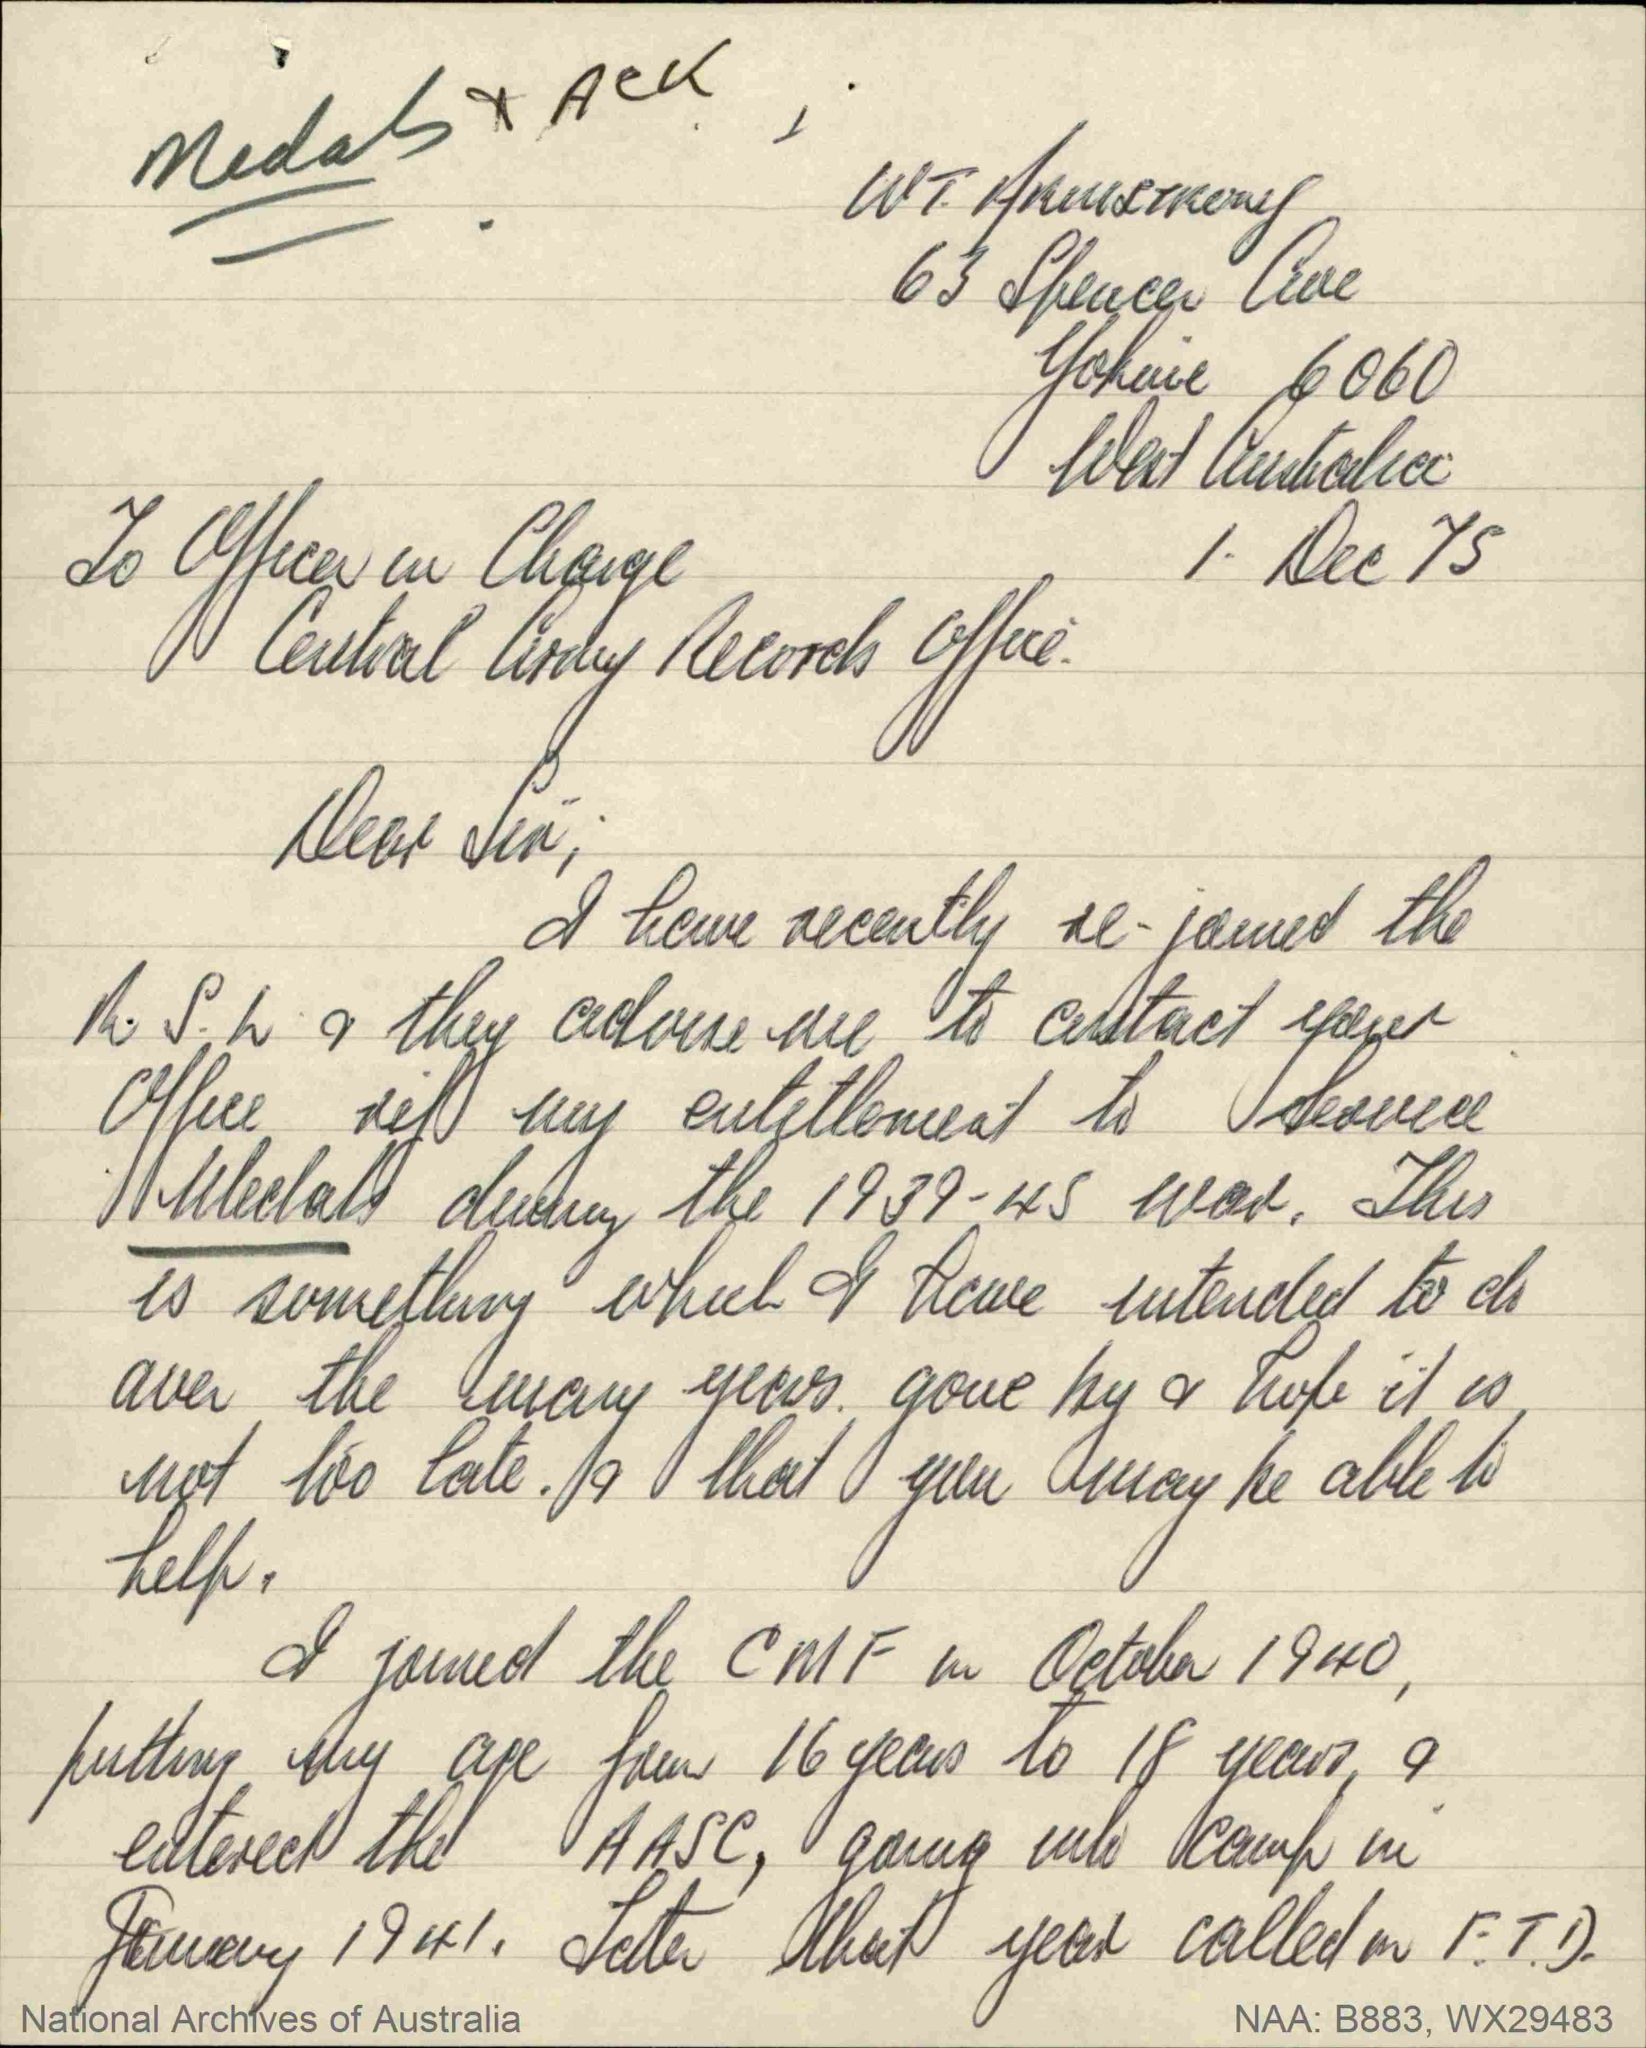 Medals & ACK
W T. Armstrong
63 Spencer Ave
Yokine 6060
West Australia
1. Dec 75
To Officer in Charge
Central Army Records Office.
Dear Sir,
I have recently re-joined the
R. S. L & they advise me to contact your
Office ref my entitlement to Service
Medals during the 1939-45 war. This
is something which I have intended to do
over the many years. gone by & hope it is
not too late. & that you may be able to
help.
I joined the CMF in October 1940,
putting my age from 16 years to 18 years, &
entered the AASC, going into camp in
January 1941. Later that year called on F.T.D.
National Archives of Australia
NAA: B883, WX29483